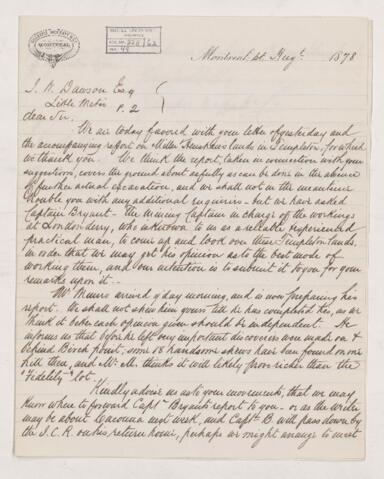 MONTREAL
Montreal 21 Augt 1878
J. W. Dawson Esq
Little Metis P. 2
dear Sir.
We are today favored with your letter of yesterday and
the accompanying report on Miller & lands in Templeton, for which
we thank you. We think the report, taken in connection with your
suggestion, covers the ground about as fully as can be done in the absence
of further actual excavation, and we shall not in the meantime
trouble you with any additional enquiries - but we have asked
Captain Bryant - the Mining Captain in charge of the workings
at Londonderry, who is known to us as a reliable & experienced
practical man, to come up and look over these Templeton lands,
in order that we may get his opinion as to the best mode of
working them, and our intention is to submit it to you for your
remarks upon it.
Mr Munro arrived yday morning, and is now preparing his
report. We shall not show him yours till he has completed his, as we
think it better each opinion given should be independent. He
informs us that before he left very important discoveries were made on &
behind Birch point, some 18 handsome shews have been found on one
hill there, and Mr. M. thinks it will likely prove richer than the
"Fidelity" lot.
Kindly advise us as to your movements, that we may
know where to forward Captn Bryants report to you - or as the writer
may be about Cacouna next week, and Captn B. will pass down by
the I. C. R. on his return home, perhaps we might arrange to meet